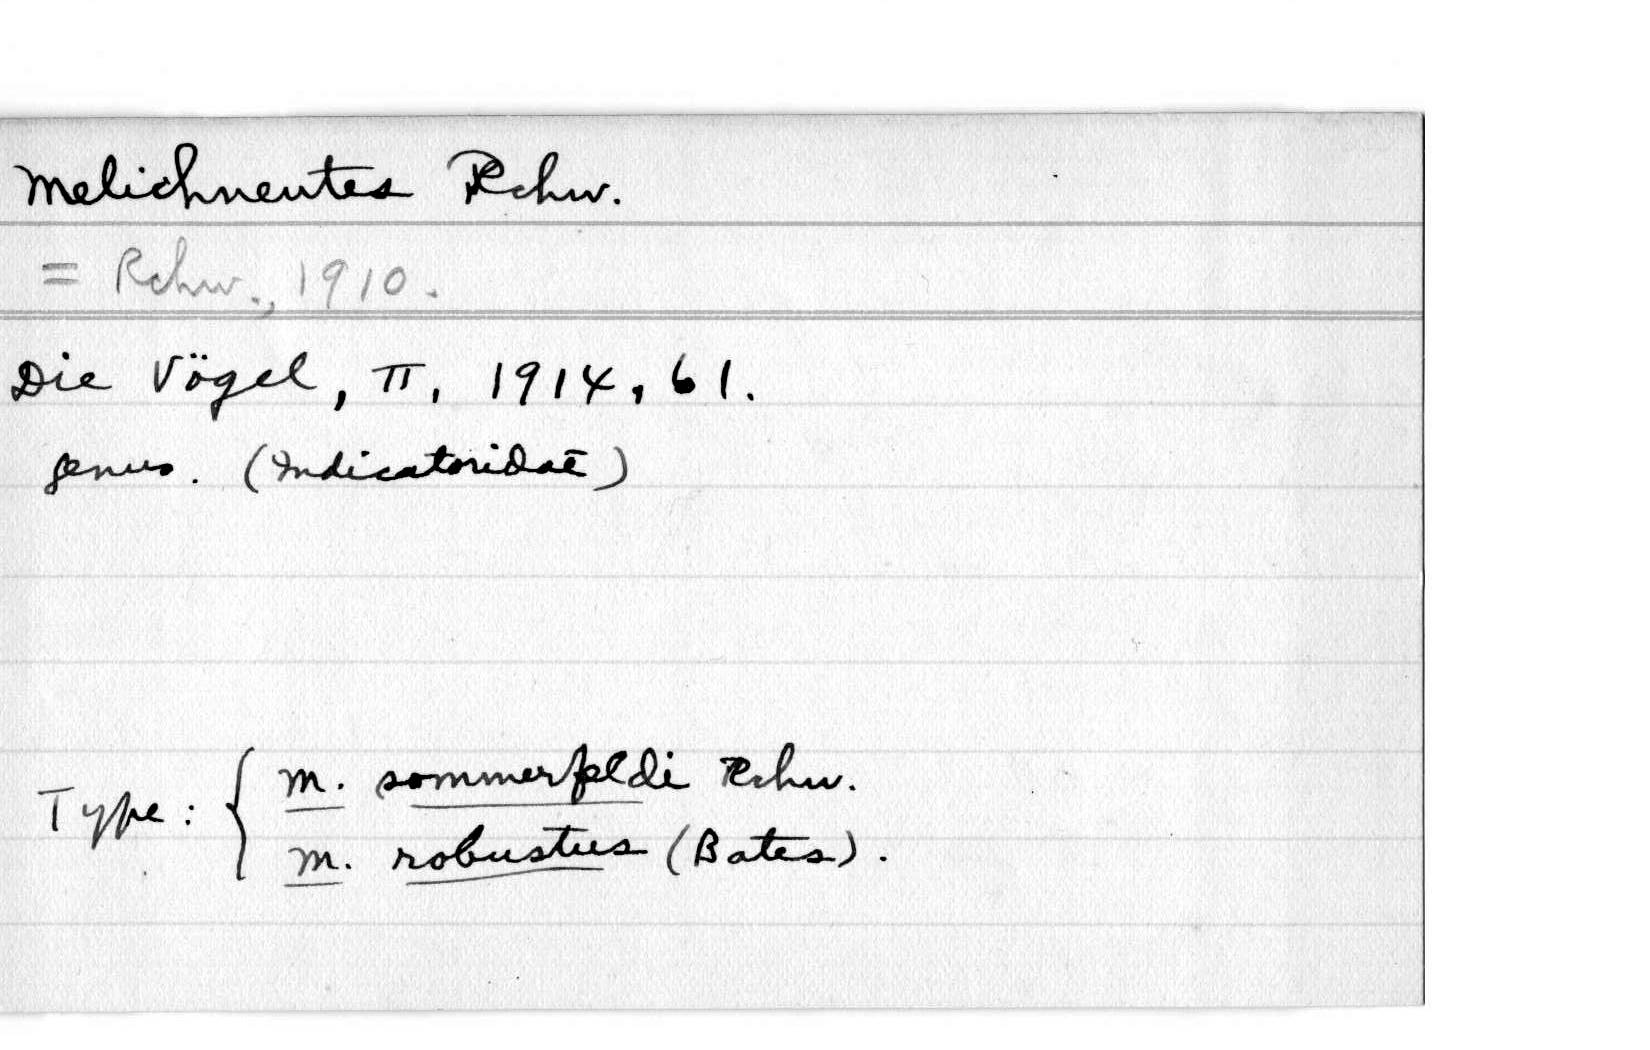 Melichneutes Rchw.
= Rchw., 1910.
Die Vögel, II, 1914, 61.
genus. (Indicatoridae)
Type: { M. sommerfeldi Rchw.
M. robustus (Bates).